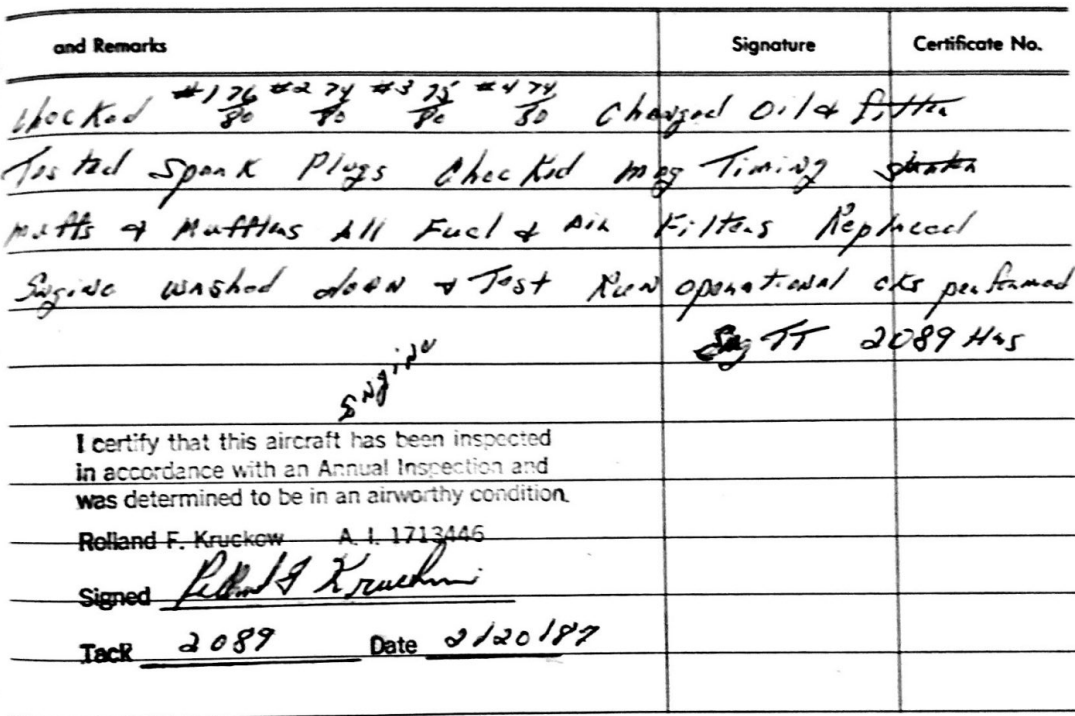 and Remarks Signature Certificate No.
Checked #1 76/80 #2 74/80 #3 75/80 #4 74/80 Changed Oil & filter
Tested Spark Plugs Checked mag Timing
muffs & Mufflers All Fuel & Air Filters Replaced
Engine washed down & Test Run operational cks performed
Eng TT 2089 Hrs
Engine
I certify that this aircraft has been inspected
in accordance with an Annual Inspection and
was determined to be in an airworthy condition.
Rolland F. Kruckow A. I. 1713446
Signed Rolland F Kruckow
Tack 2089 Date 2/20/87